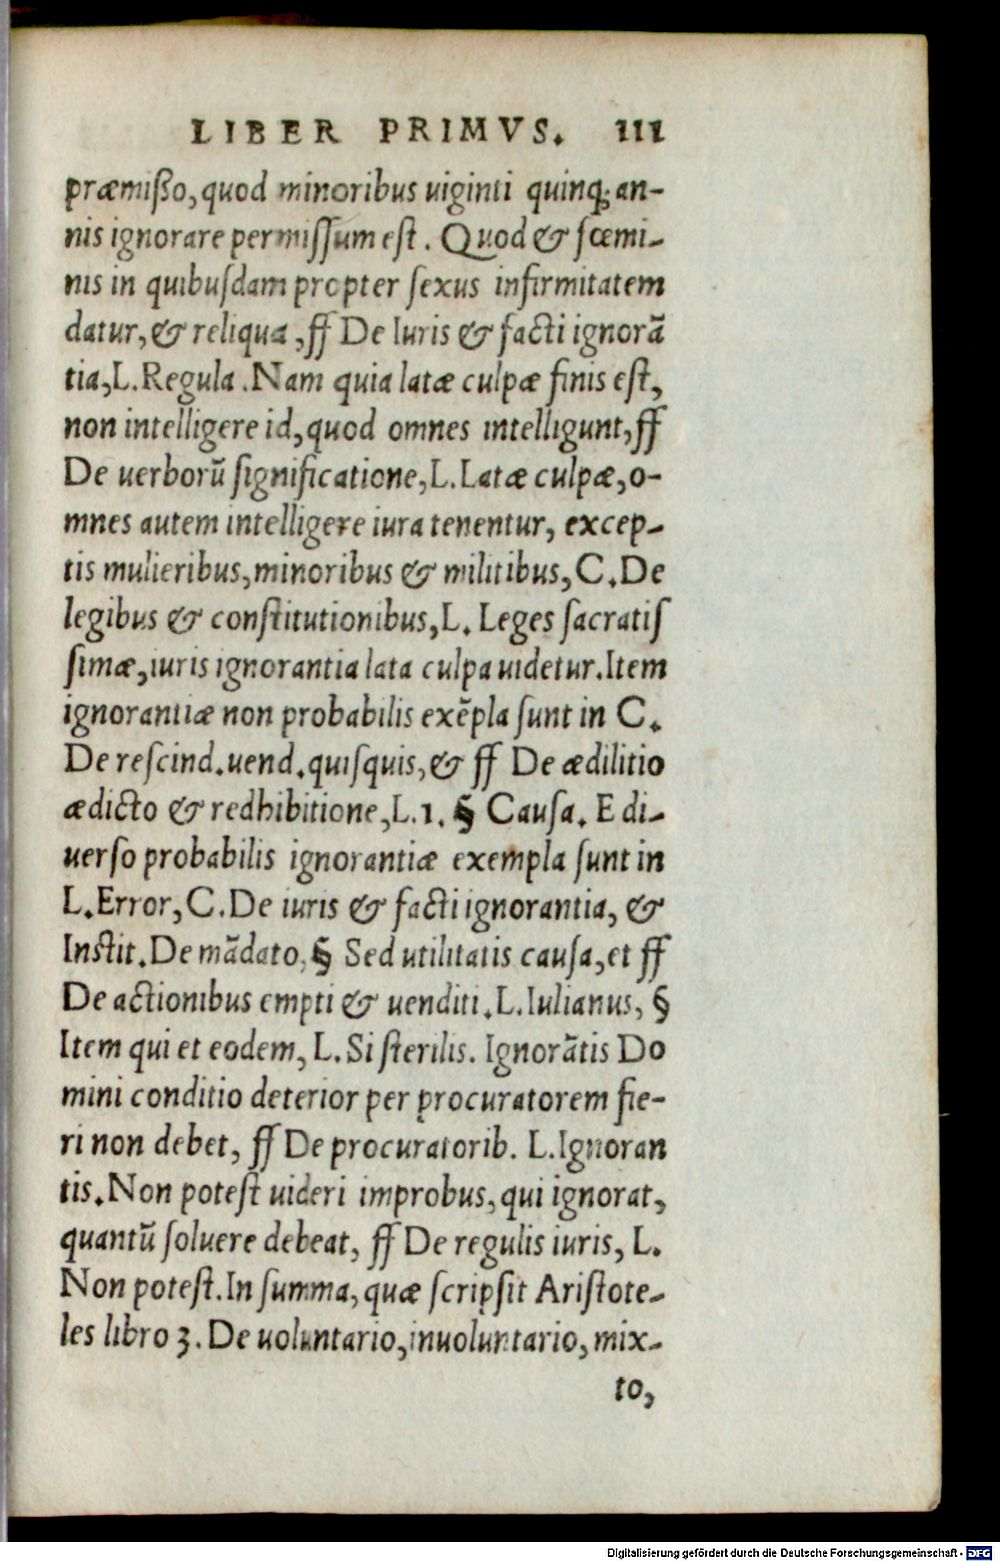 LIBER PRIMVS. 111
præmißo, quod minoribus uiginti quinq; an-
nis ignorare permiſſum eſt. Quod & fœmi-
nis in quibuſdam propter ſexus infirmitatem
datur, & reliqua, ff De Iuris & facti ignorã
tia, L. Regula. Nam quia latæ culpæ finis eſt,
non intelligere id, quod omnes intelligunt, ff
De uerborũ ſignificatione, L. Latæ culpæ, o-
mnes autem intelligere iura tenentur, excep-
tis mulieribus, minoribus & militibus, C. De
legibus & conſtitutionibus, L. Leges ſacratiſ
ſimæ, iuris ignorantia lata culpa uidetur. Item
ignorantiæ non probabilis exẽpla ſunt in C.
De reſcind. uend. quiſquis, & ff De ædilitio
ædicto & redhibitione, L. 1. § Cauſa. E di-
uerſo probabilis ignorantiæ exempla ſunt in
L. Error, C. De iuris & facti ignorantia, &
Inſtit. De mãdato, § Sed utilitatis cauſa, et ff
De actionibus empti & uenditi. L. Iulianus, §
Item qui et eodem, L. Si ſterilis. Ignorãtis Do
mini conditio deterior per procuratorem fie-
ri non debet, ff De procuratorib. L. Ignoran
tis. Non poteſt uideri improbus, qui ignorat,
quantũ ſoluere debeat, ff De regulis iuris, L.
Non poteſt. In ſumma, quæ ſcripſit Ariſtote-
les libro 3. De uoluntario, inuoluntario, mix-
to,
Digitalisierung gefördert durch die Deutsche Forschungsgemeinschaft - DFG